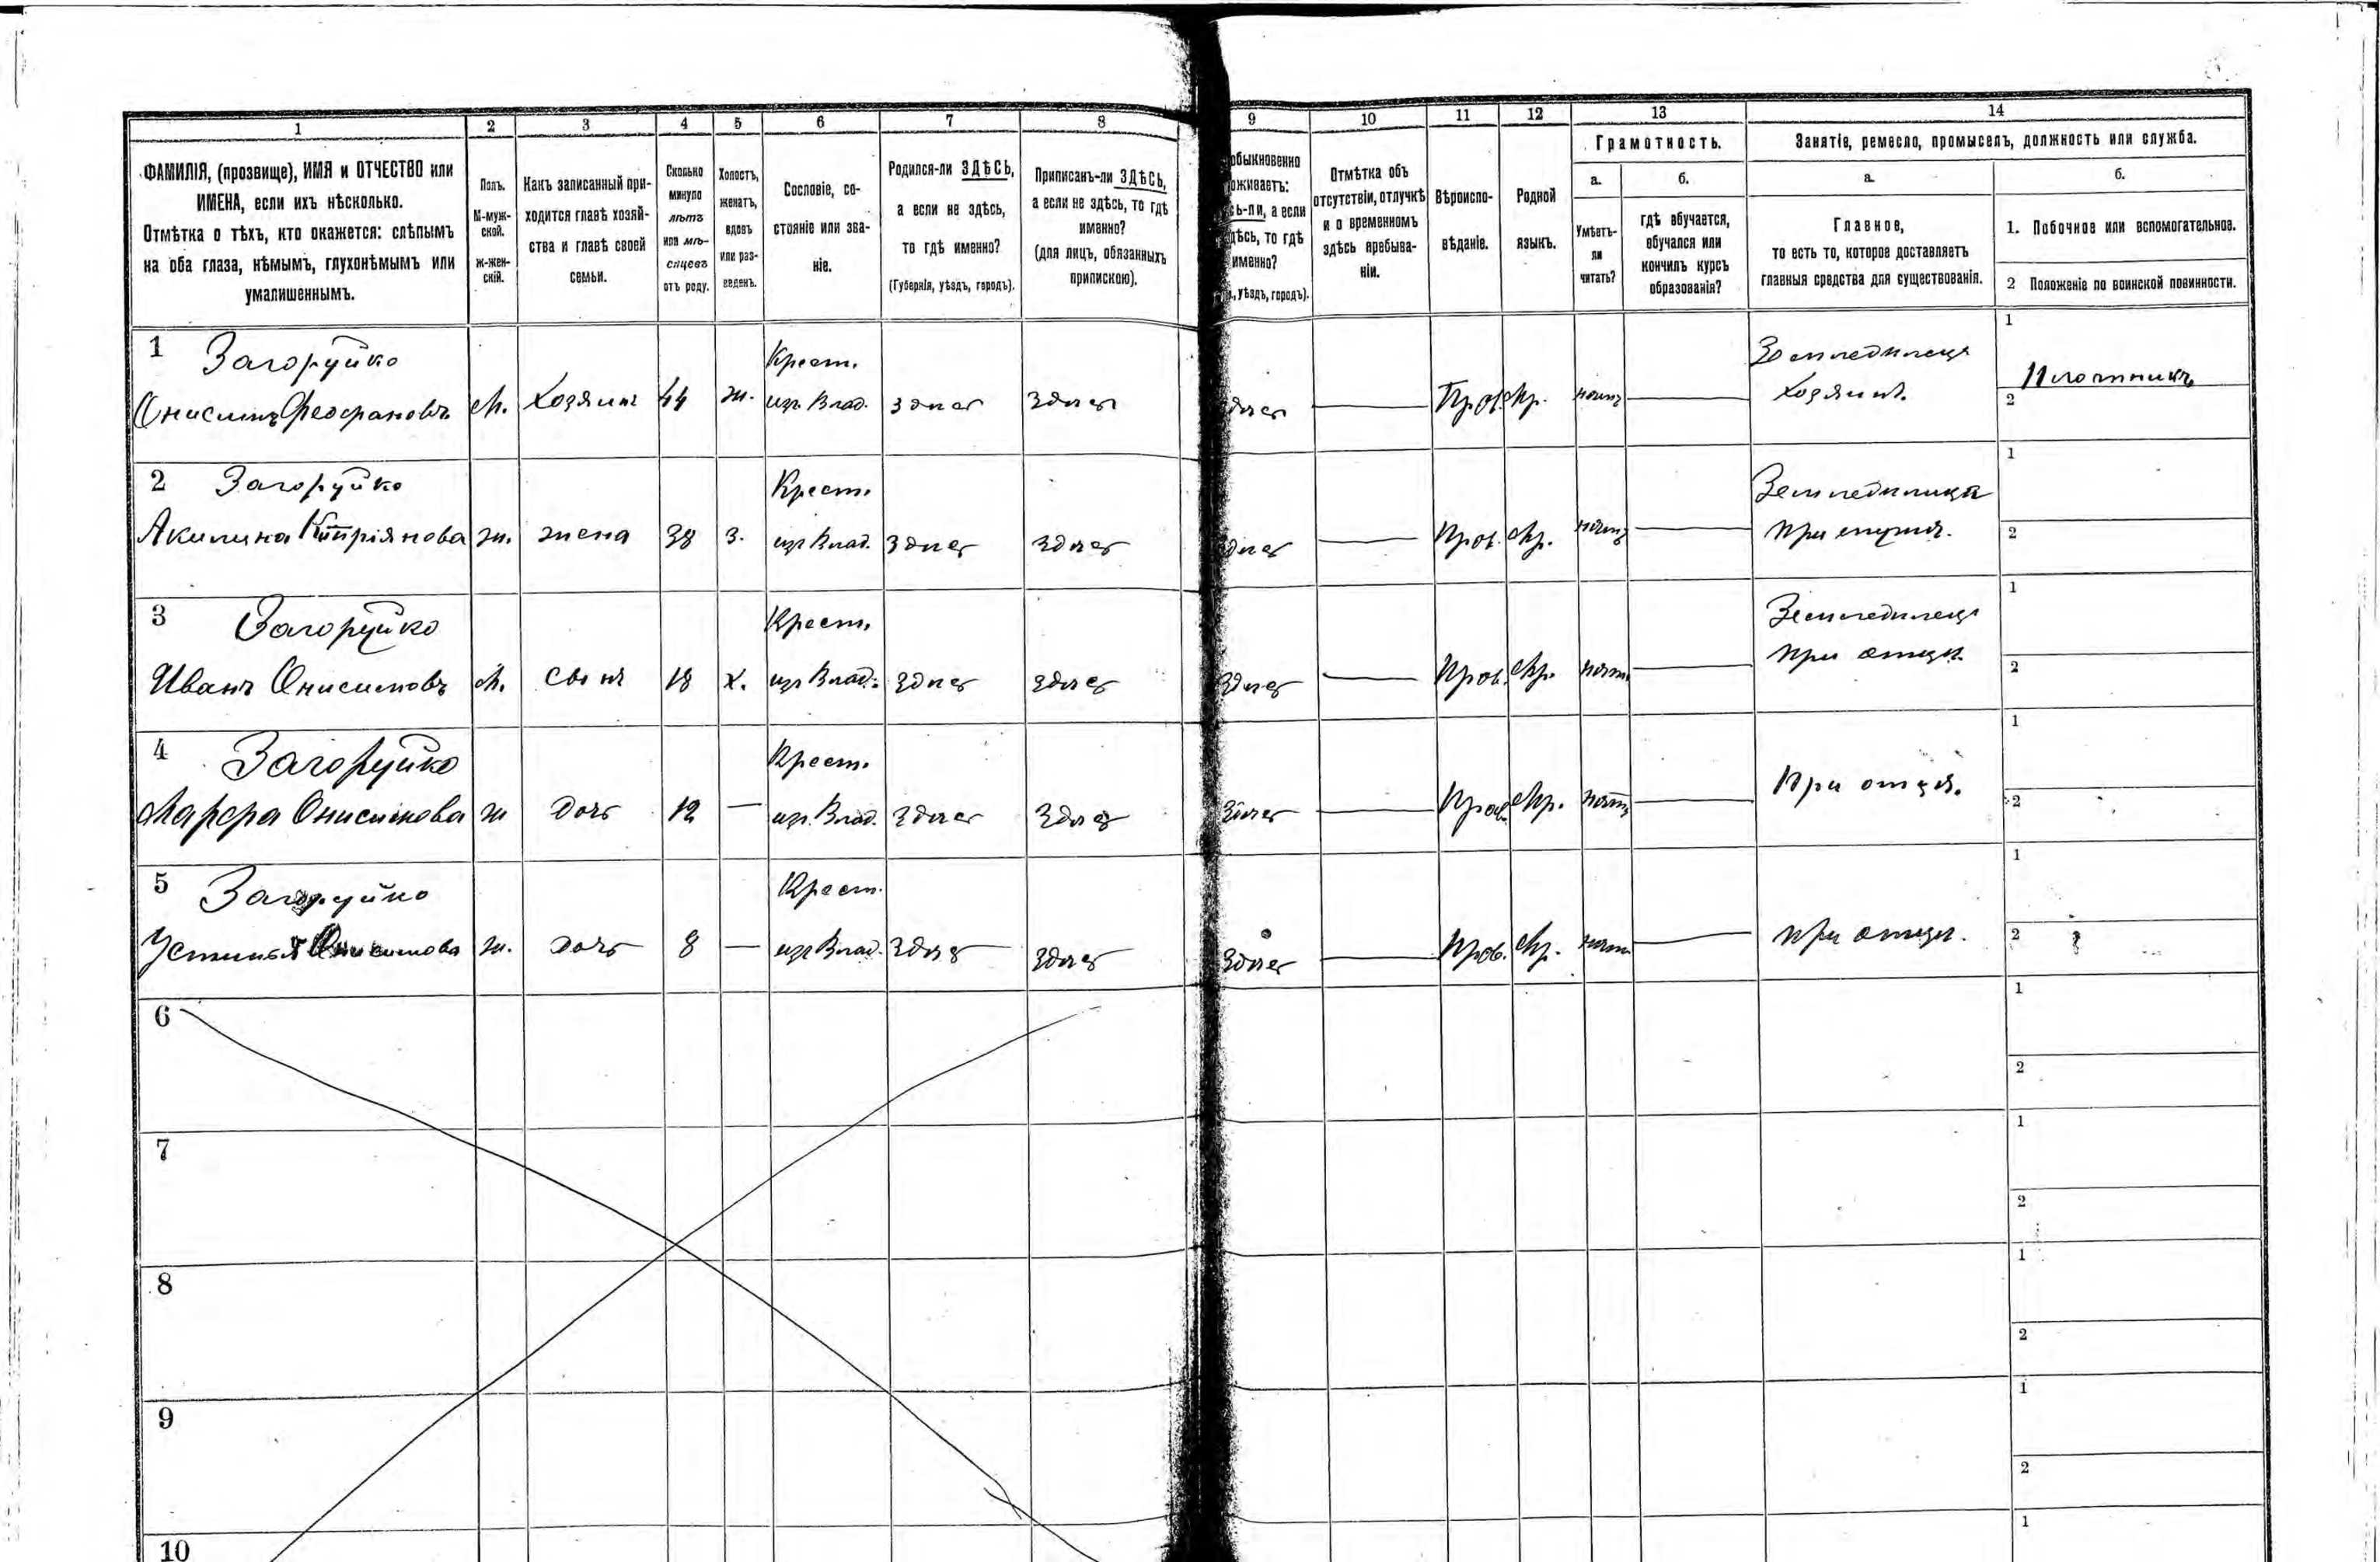 1 2 3 4 5 6 7 8 9 10 11 12 13 14
ФАМИЛІЯ, (прозвище), ИМЯ и ОТЧЕСТВО или
ИМЕНА, если ихъ нѣсколько.
Отмѣтка о тѣхъ, кто окажется: слѣпымъ
на оба глаза, нѣмымъ, глухонѣмымъ или
умалишеннымъ.
Полъ.
М-муж-
ской.
ж-жен-
скій.
Какъ записанный при-
ходится главѣ хозяй-
ства и главѣ своей
семьи.
Сколько
минуло
лѣтъ
или мѣ-
сяцевъ
отъ роду.
Холостъ,
женатъ,
вдовъ
или раз-
веденъ.
Сословіе, со-
стояніе или зва-
ніе.
Родился-ли ЗДѢСЬ,
а если не здѣсь,
то гдѣ именно?
(Губернія, уѣздъ, городъ).
Приписанъ-ли ЗДѢСЬ,
а если не здѣсь, то гдѣ
именно?
(для лицъ, обязанныхъ
припискою).
обыкновенно
оживаетъ:
сь-ли, а если
дѣсь, то гдѣ
именно?
, уѣздъ, городъ).
Отмѣтка объ
отсутствіи, отлучкѣ
и о временномъ
здѣсь пребыва-
ніи.
Вѣроиспо-
вѣданіе.
Родной
языкъ.
Грамотность.
а.
Умѣетъ-
ли
читать?
б.
гдѣ обучается,
обучался или
кончилъ курсъ
образованія?
Занятіе, ремесло, промыселъ, должность или служба.
а.
Главное,
то есть то, которое доставляетъ
главныя средства для существованія.
б.
1. Побочное или вспомогательное.
2 Положеніе по воинской повинности.
1 Загоруйко Крест. Земледѣлецъ 1
Онисимъ Феофановъ М. Хозяинъ 44 ж. изъ Влад. здѣсь здѣсь здѣсь — Прав. Мр. нѣтъ — Хозяинъ. Плотникъ
2
2 Загоруйко Крест. Земледѣлица 1
Акилина Кипріянова ж. жена 38 з. изъ Влад. здѣсь здѣсь здѣсь — Прав. Мр. нѣтъ — при мужѣ. 2
3 Загоруйко Крест. Земледѣлецъ 1
Иванъ Онисимовъ М. сынъ 18 х. изъ Влад. здѣсь здѣсь здѣсь — Прав. Мр. нѣтъ — при отцѣ. 2
4 Загоруйко Крест. 1
Марфра Онисимова ж дочь 12 — изъ Влад. здѣсь здѣсь здѣсь — Прав. Мр. нѣтъ — При отцѣ. 2
5 Загоруйко Крест. 1
Устинья Онисимова ж. дочь 8 — изъ Влад. здѣсь здѣсь здѣсь — Прав. Мр. нѣтъ — при отцѣ. 2
6 1
2
7 1
2
8 1
2
9 1
2
10 1